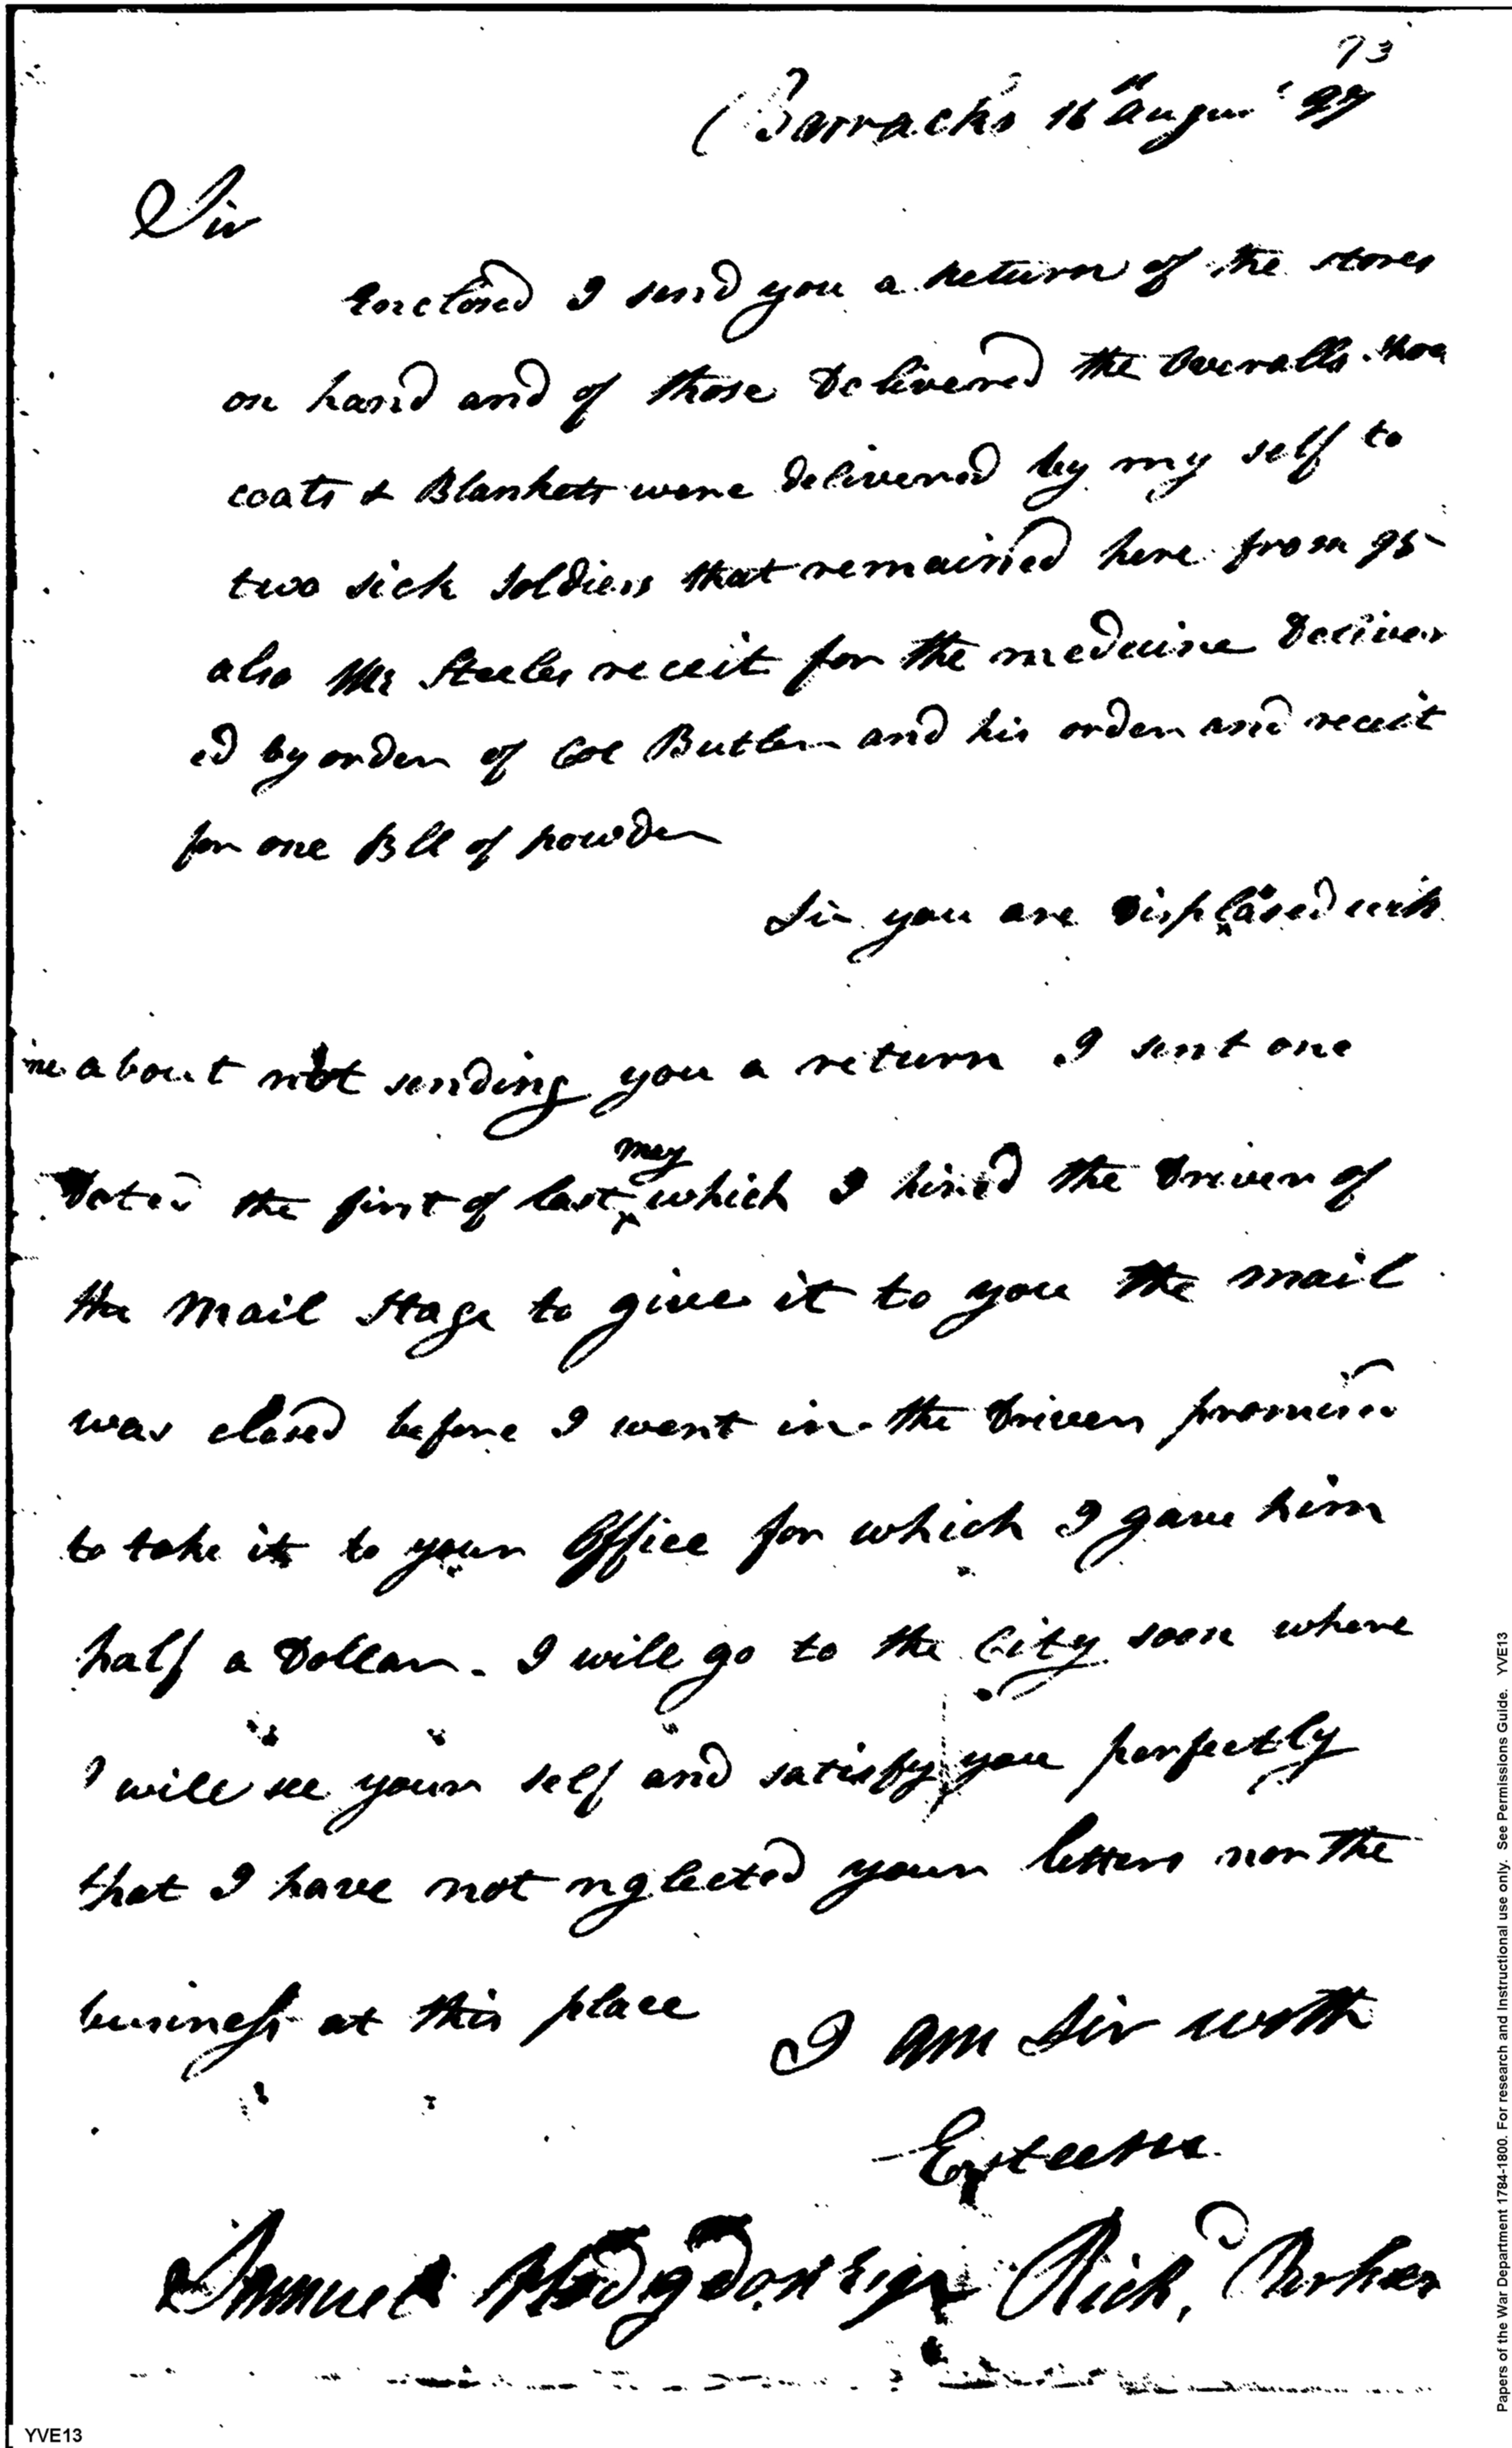 73
Barracks 16th Augus' 97
Sir
Enclosed I send you a Return of the stores
on hand and of those Delivered the Overalls shoe
coats & Blankets were delivered by my self to
two sick soldiers that remained here from 95
also Mr Steeles receit for the medicine Deliver
ed by order of Col Butler and his order and receit
for one Bll of powder
Sir you are Displeased with
me about not sending you a return I sent one
may
Dated the first of last which I hired the Driver of
the Mail Stage to give it to you the mail
was closed before I went in the Driver promised
to take it to your Office for which I gave him
half a Dollar. I will go to the City soon where
I will see your self and satisfy you perfectly
that I have not nglected your letters nor the
business at this place
I am Sir with
Esteem
Samuel Hodgdon Esqr Rich. Parker
YVE13
Papers of the War Department 1784-1800. For research and Instructional use only. See Permissions Guide. YVE13